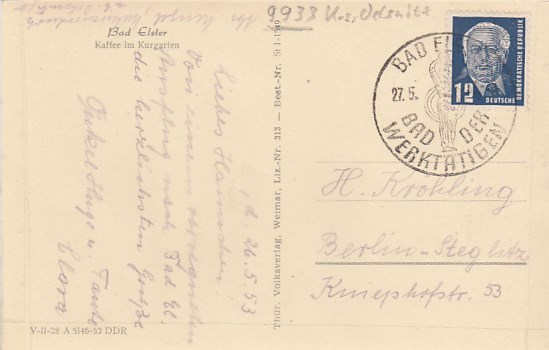 9933
Bad Elster
Kaffee im Kurgarten
d. 26.5.53
Liebes Hannchen!
Von einem vergnügten
Ausflug nach Bad El.
die herzlichsten Grüße
Onkel Hugo u. Tante
Clora
V-11-28 A 5146-53 DDR
Thür. Volksverlag, Weimar, Liz.-Nr. 313 — Best.-Nr. 51
BAD ELSTER
27.5.
BAD DER
WERKTÄTIGEN
12
DEUTSCHE
DEMOKRATISCHE REPUBLIK
H. Krohling
Berlin-Steglitz
Kniephofstr. 53